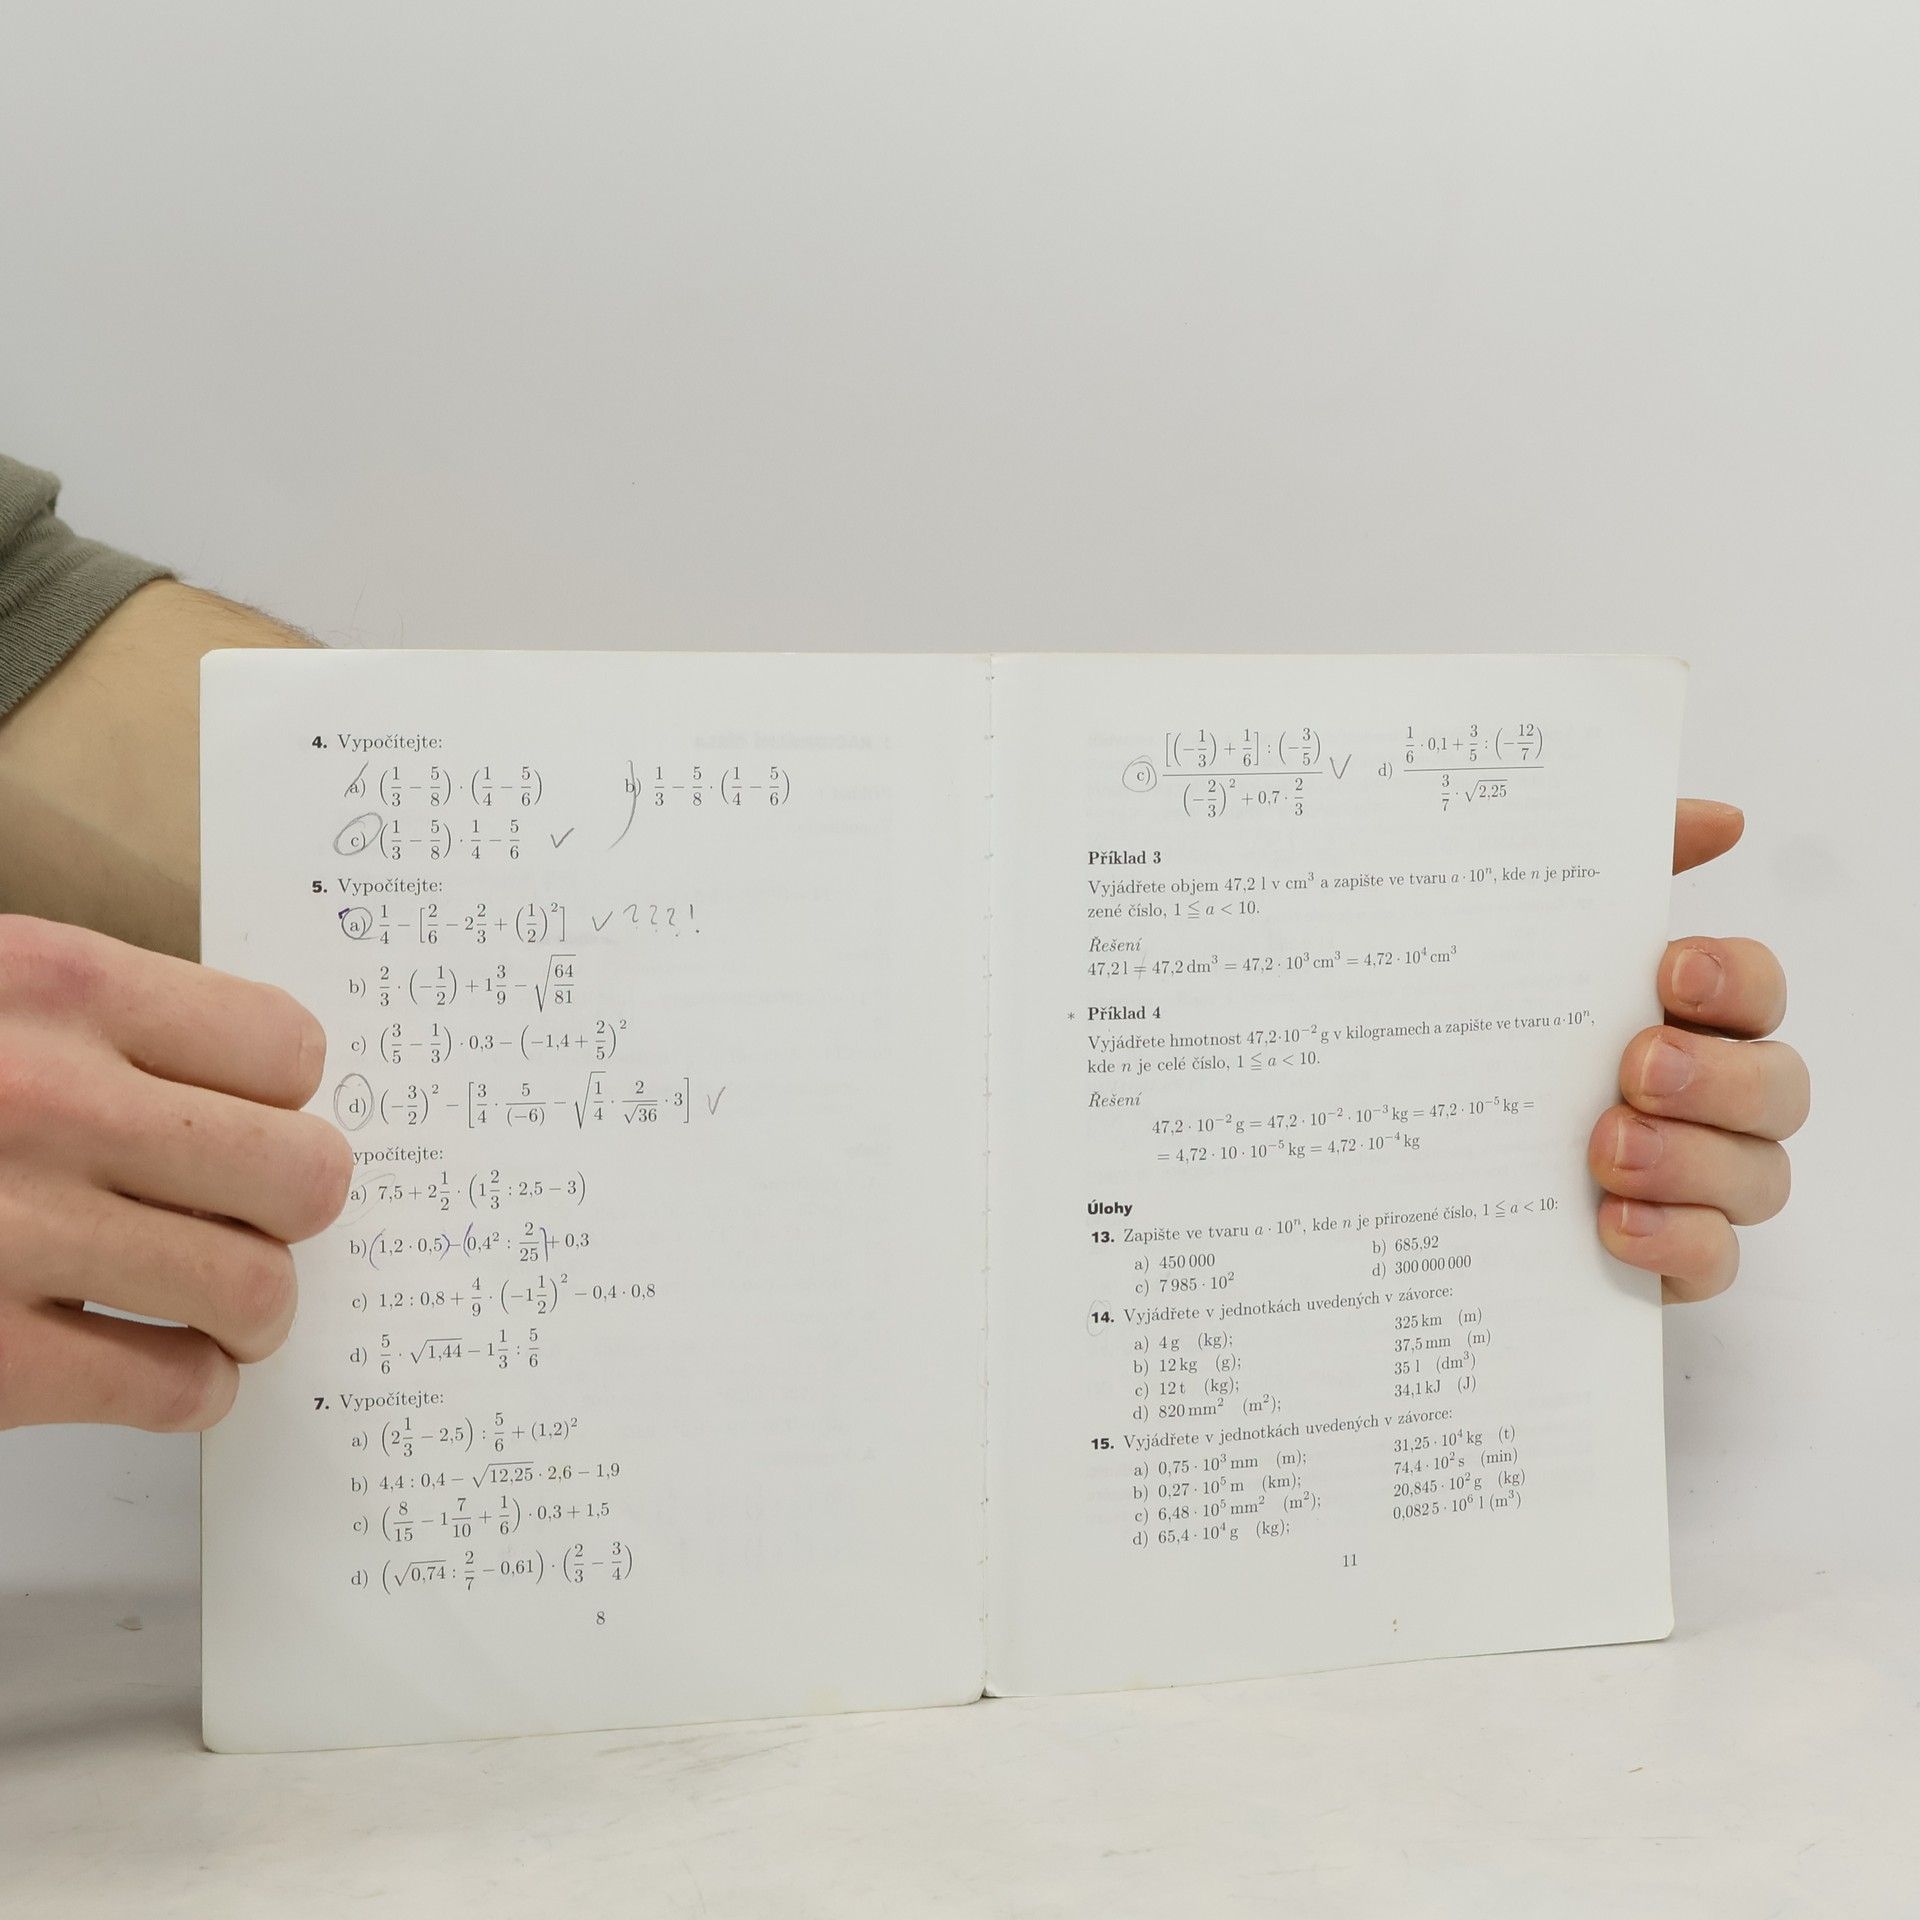 4. Vypočítejte:
a) (1/3 − 5/8) · (1/4 − 5/6) b) 1/3 − 5/8 · (1/4 − 5/6)
c) (1/3 − 5/8) · 1/4 − 5/6 ✓
5. Vypočítejte:
a) 1/4 − [2/6 − 2 2/3 + (1/2)²] ✓ ???!
b) 2/3 · (−1/2) + 1 3/9 − √(64/81)
c) (3/5 − 1/3) · 0,3 − (−1,4 + 2/5)²
d) (−3/2)² − [3/4 · 5/(−6) − √(1/4) · 2/√36 · 3] ✓
ypočítejte:
a) 7,5 + 2 1/2 · (1 2/3 : 2,5 − 3)
b) (1,2 · 0,5) − (0,4² : 2/25) + 0,3
c) 1,2 : 0,8 + 4/9 · (−1 1/2)² − 0,4 · 0,8
d) 5/6 · √1,44 − 1 1/3 : 5/6
7. Vypočítejte:
a) (2 1/3 − 2,5) : 5/6 + (1,2)²
b) 4,4 : 0,4 − √12,25 · 2,6 − 1,9
c) (8/15 − 1 7/10 + 1/6) · 0,3 + 1,5
d) (√0,74 : 2/7 − 0,61) · (2/3 − 3/4)
8
c) ([(−1/3) + 1/6] : (−3/5)) / ((−2/3)² + 0,7 · 2/3) ✓ d) (1/6 · 0,1 + 3/5 : (−12/7)) / (3/7 · √2,25)
Příklad 3
Vyjádřete objem 47,2 l v cm³ a zapište ve tvaru a · 10ⁿ, kde n je přiro-
zené číslo, 1 ≦ a < 10.
Řešení
47,2 l = 47,2 dm³ = 47,2 · 10³ cm³ = 4,72 · 10⁴ cm³
* Příklad 4
Vyjádřete hmotnost 47,2·10⁻² g v kilogramech a zapište ve tvaru a·10ⁿ,
kde n je celé číslo, 1 ≦ a < 10.
Řešení
47,2 · 10⁻² g = 47,2 · 10⁻² · 10⁻³ kg = 47,2 · 10⁻⁵ kg =
= 4,72 · 10 · 10⁻⁵ kg = 4,72 · 10⁻⁴ kg
Úlohy
13. Zapište ve tvaru a · 10ⁿ, kde n je přirozené číslo, 1 ≦ a < 10:
a) 450 000 b) 685,92
c) 7 985 · 10² d) 300 000 000
14. Vyjádřete v jednotkách uvedených v závorce:
a) 4 g (kg); 325 km (m)
b) 12 kg (g); 37,5 mm (m)
c) 12 t (kg); 35 l (dm³)
d) 820 mm² (m²); 34,1 kJ (J)
15. Vyjádřete v jednotkách uvedených v závorce:
a) 0,75 · 10³ mm (m); 31,25 · 10⁴ kg (t)
b) 0,27 · 10⁵ m (km); 74,4 · 10² s (min)
c) 6,48 · 10⁵ mm² (m²); 20,845 · 10² g (kg)
d) 65,4 · 10⁴ g (kg); 0,082 5 · 10⁶ l (m³)
11